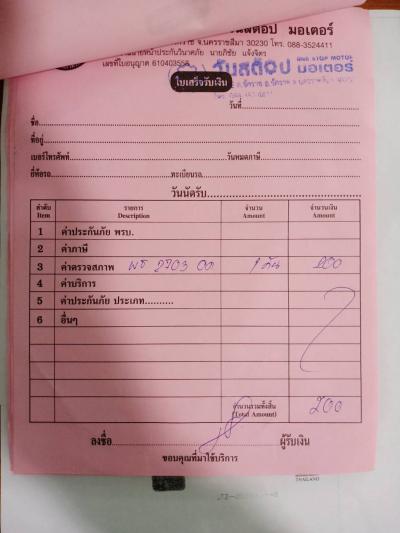 วันสต๊อป มอเตอร์
จ.นครราชสีมา 30230 โทร. 088-3524411
นายหน้าประกันวินาศภัย นายภิชัย แจ้งจิตร
เลขที่ใบอนุญาต 610403556
ONE STOP MOTOR
วันสต๊อป มอเตอร์
ใบเสร็จรับเงิน
วันที่
ชื่อ
ที่อยู่
เบอร์โทรศัพท์ วันหมดภาษี
ยี่ห้อรถ ทะเบียนรถ
วันนัดรับ
ลำดับ รายการ จำนวน จำนวนเงิน
Item Description Amount Amount
1 ค่าประกันภัย พรบ.
2 ค่าภาษี
3 ค่าตรวจสภาพ 1 คัน 200
4 ค่าบริการ
5 ค่าประกันภัย ประเภท..........
6 อื่นๆ
จำนวนรวมทั้งสิ้น 200
(Total Amount)
ลงชื่อ ผู้รับเงิน
ขอบคุณที่มาใช้บริการ
THAILAND